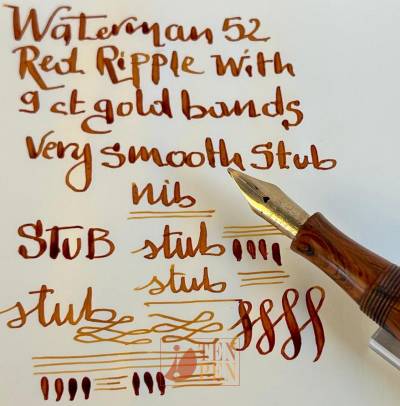 Waterman 52
Red Ripple with
9 ct gold bands
Very smooth Stub
nib
STUB stub
stub
stub
TEN
PEN